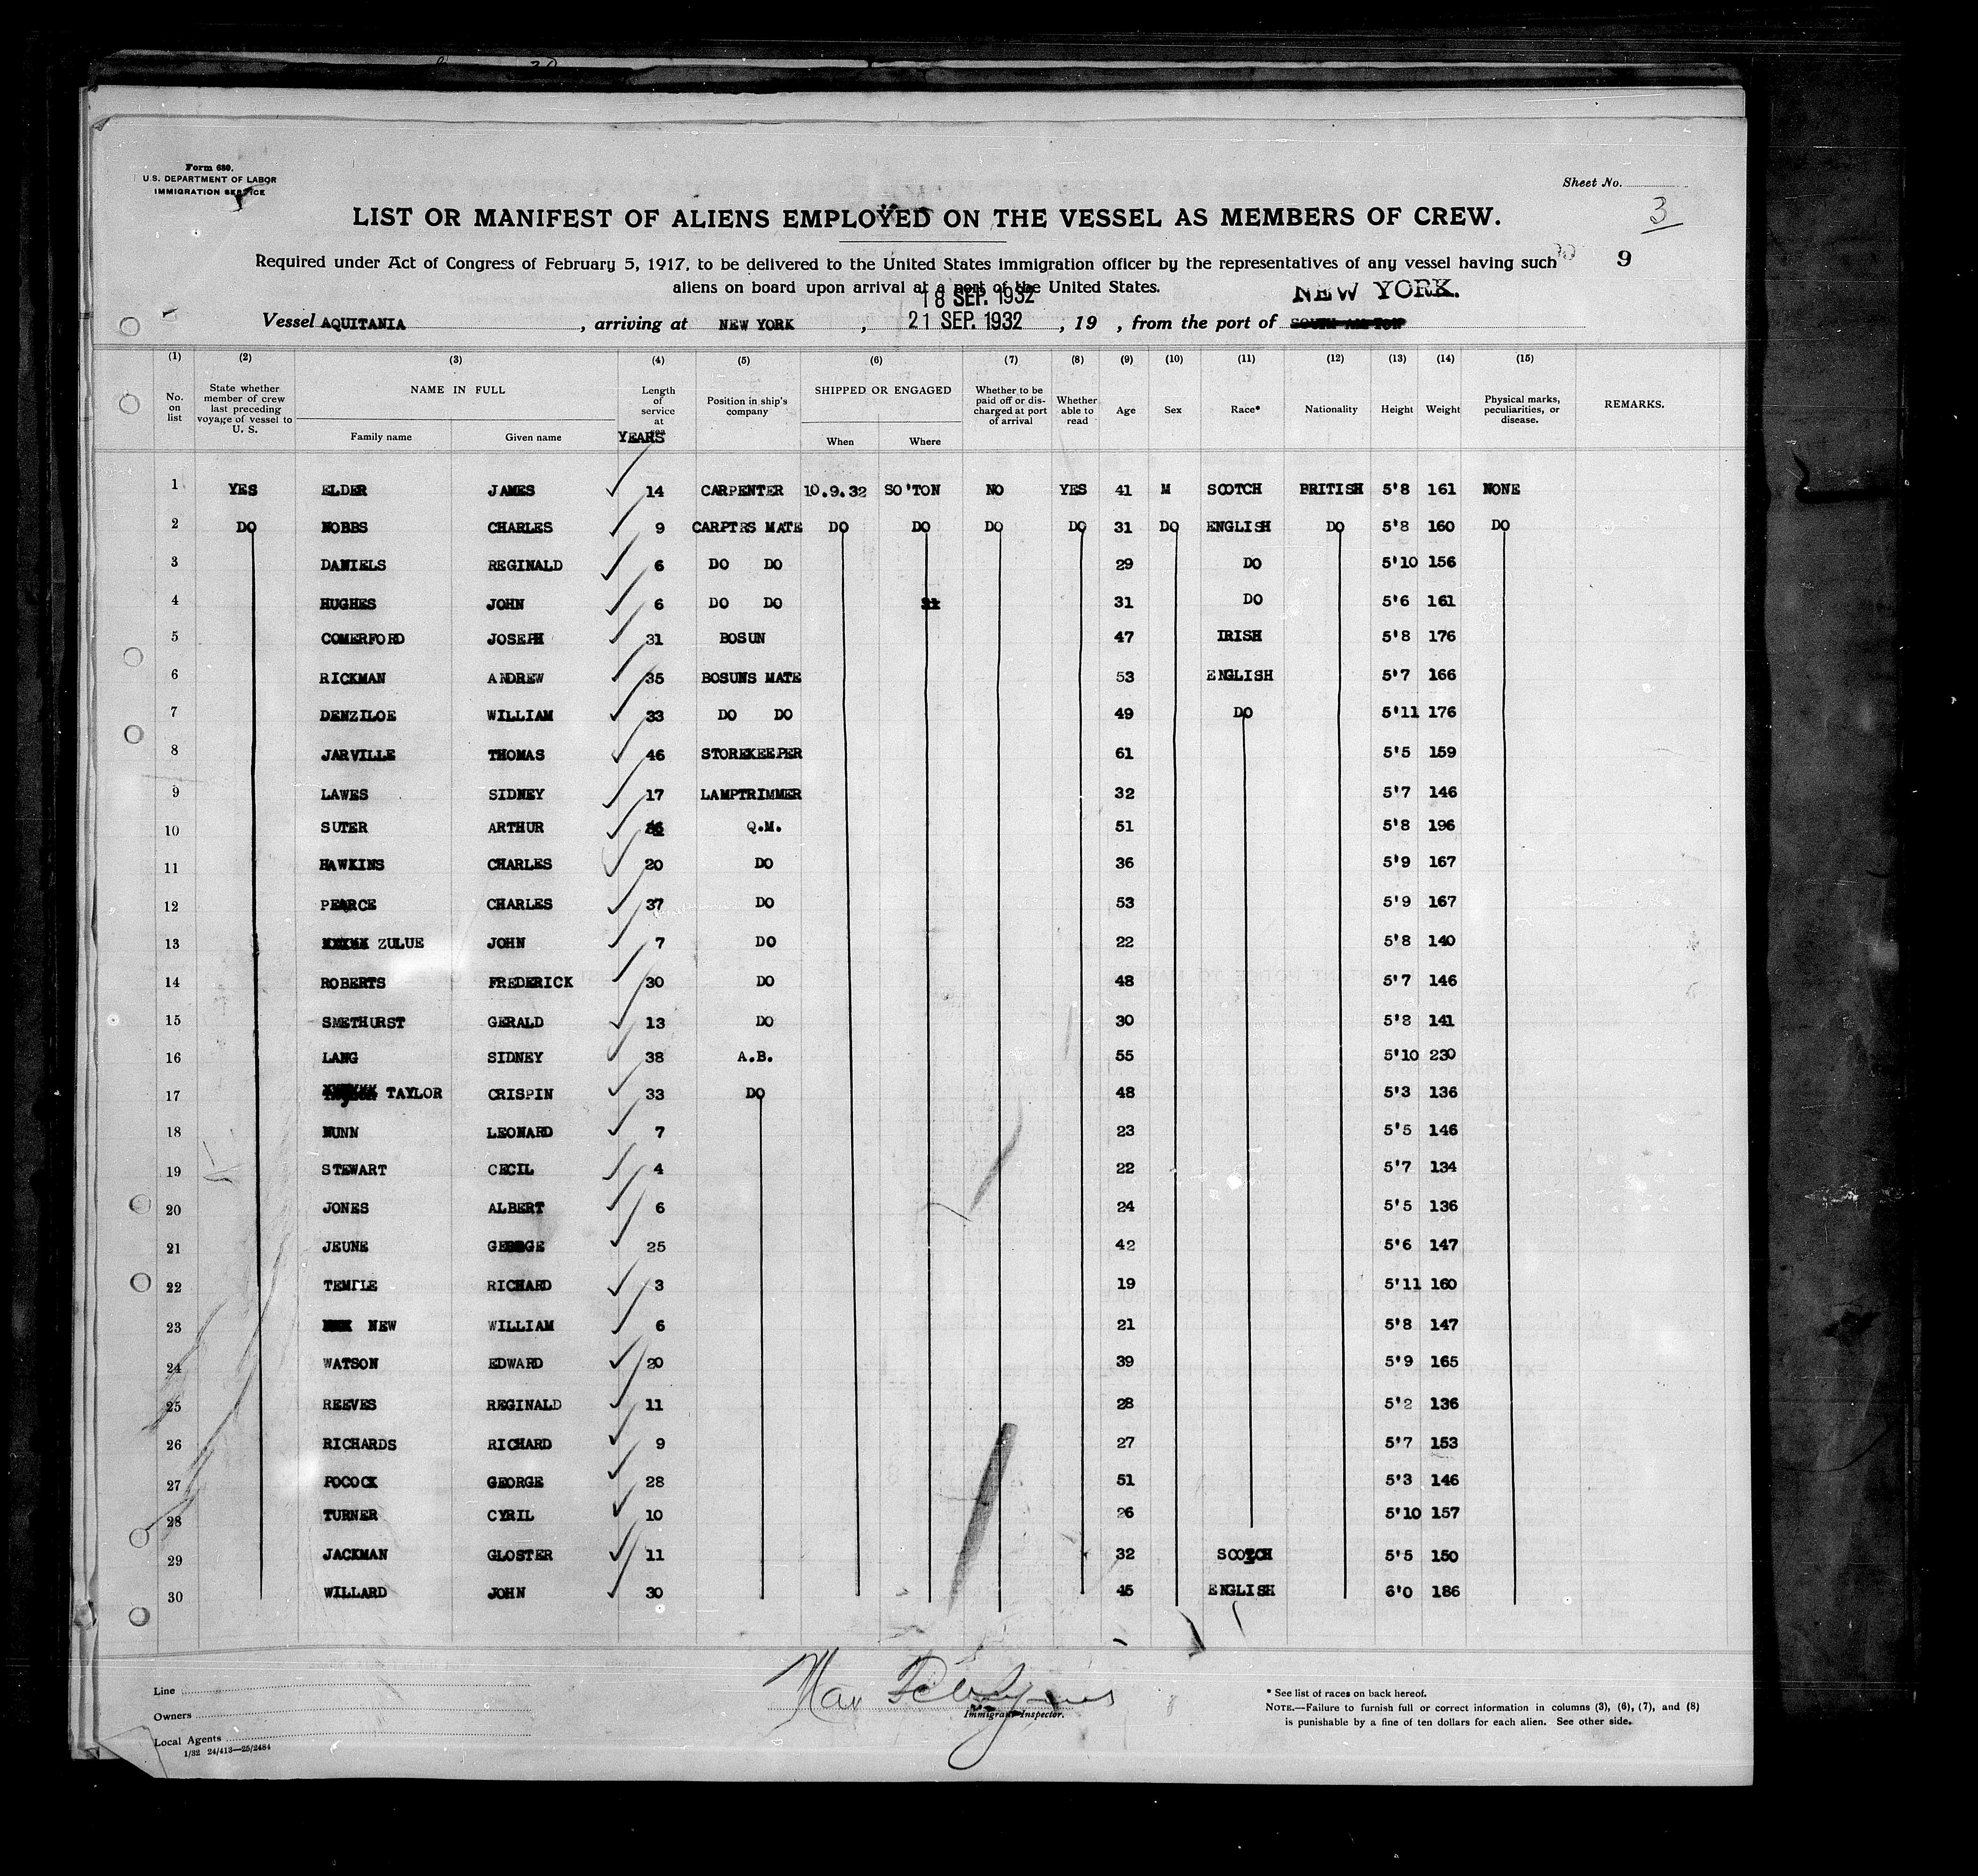 Form 680.
U.S. DEPARTMENT OF LABOR
IMMIGRATION SERVICE
Sheet No.
3
LIST OR MANIFEST OF ALIENS EMPLOYED ON THE VESSEL AS MEMBERS OF CREW.
9
Required under Act of Congress of February 5, 1917, to be delivered to the United States immigration officer by the representatives of any vessel having such
aliens on board upon arrival at a port of the United States.
18 SEP. 1932 NEW YORK.
Vessel AQUITANIA , arriving at NEW YORK , 21 SEP. 1932 , 19 , from the port of SOUTHAMPTON
(1) (2) (3) (4) (5) (6) (7) (8) (9) (10) (11) (12) (13) (14) (15)
No. on list State whether member of crew last preceding voyage of vessel to U. S. NAME IN FULL Length of service at sea Position in ship's company SHIPPED OR ENGAGED Whether to be paid off or discharged at port of arrival Whether able to read Age Sex Race* Nationality Height Weight Physical marks, peculiarities, or disease. REMARKS.
Family name Given name YEARS When Where
1 YES ELDER JAMES 14 CARPENTER 10.9.32 SO'TON NO YES 41 M SCOTCH BRITISH 5'8 161 NONE
2 DO NOBBS CHARLES 9 CARPTRS MATE DO DO DO DO 31 DO ENGLISH DO 5'8 160 DO
3 DANIELS REGINALD 6 DO DO 29 DO 5'10 156
4 HUGHES JOHN 6 DO DO 31 DO 5'6 161
5 COMERFORD JOSEPH 31 BOSUN 47 IRISH 5'8 176
6 RICKMAN ANDREW 35 BOSUNS MATE 53 ENGLISH 5'7 166
7 DENZILOE WILLIAM 33 DO DO 49 DO 5'11 176
8 JARVILLE THOMAS 46 STOREKEEPER 61 5'5 159
9 LAWES SIDNEY 17 LAMPTRIMMER 32 5'7 146
10 SUTER ARTHUR Q.M. 51 5'8 196
11 HAWKINS CHARLES 20 DO 36 5'9 167
12 PEARCE CHARLES 37 DO 53 5'9 167
13 ZULUE JOHN 7 DO 22 5'8 140
14 ROBERTS FREDERICK 30 DO 48 5'7 146
15 SMETHURST GERALD 13 DO 30 5'8 141
16 LANG SIDNEY 38 A.B. 55 5'10 230
17 TAYLOR CRISPIN 33 DO 48 5'3 136
18 NUNN LEONARD 7 23 5'5 146
19 STEWART CECIL 4 22 5'7 134
20 JONES ALBERT 6 24 5'5 136
21 JEUNE GEORGE 25 42 5'6 147
22 TEMPLE RICHARD 3 19 5'11 160
23 NEW WILLIAM 6 21 5'8 147
24 WATSON EDWARD 20 39 5'9 165
25 REEVES REGINALD 11 28 5'2 136
26 RICHARDS RICHARD 9 27 5'7 153
27 POCOCK GEORGE 28 51 5'3 146
28 TURNER CYRIL 10 26 5'10 157
29 JACKMAN GLOSTER 11 32 SCOTCH 5'5 150
30 WILLARD JOHN 30 45 ENGLISH 6'0 186
Line
Owners
Local Agents
1/32 24/413—25/2484
Immigrant Inspector.
* See list of races on back hereof.
NOTE.—Failure to furnish full or correct information in columns (3), (6), (7), and (8)
is punishable by a fine of ten dollars for each alien. See other side.